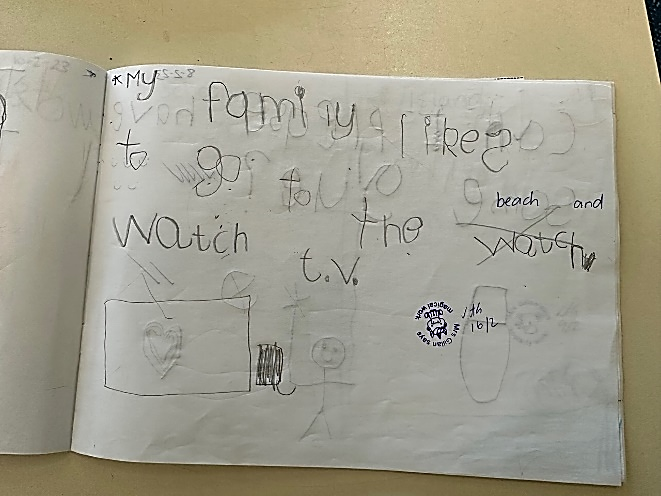 * My family likes
to go to
beach and
watch the watch
t.v.
Mrs Gilan says
magical work
16/2